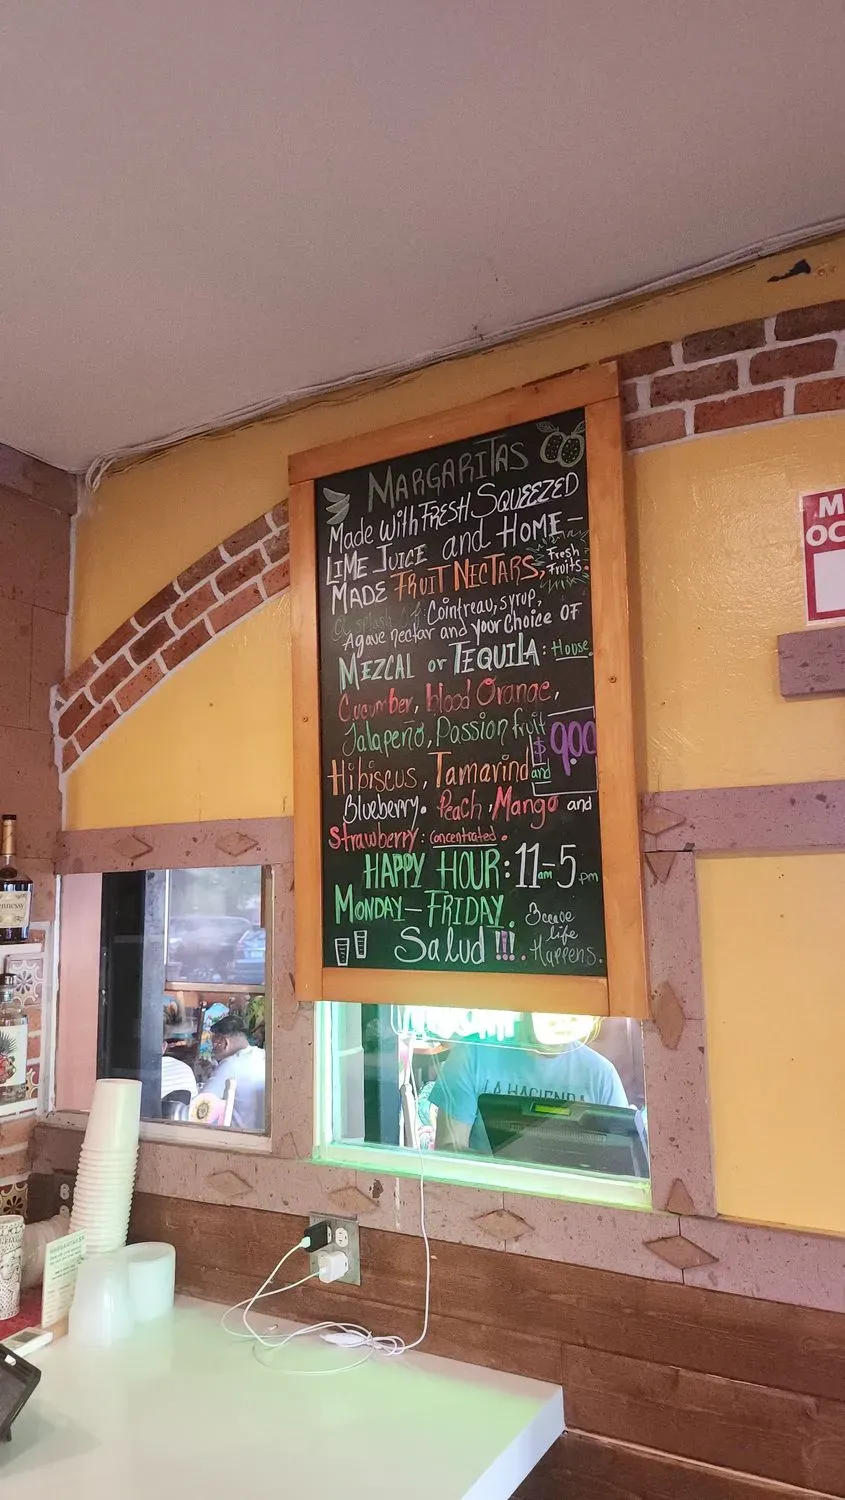 MARGARITAS
Made with FRESH SQUEEZED
LIME JUICE and HOME-
MADE FRUIT NECTARS, Fresh Fruits.
splash of: Cointreau, syrup,
Agave nectar and your choice OF
MEZCAL or TEQUILA: House.
Cucumber, blood Orange,
Jalapeño, Passion fruit
Hibiscus, Tamarind and
$9.00
Blueberry. Peach, Mango and
Strawberry: concentrated.
HAPPY HOUR: 11am-5pm
MONDAY-FRIDAY.
Salud !!!.
Becaue
life
Happens.
M
OC
LA HACIENDA
Hennessy
MARGARITAS